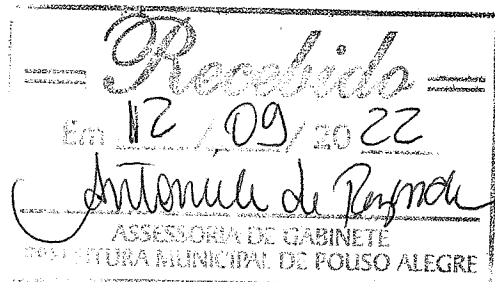 Recebido
Em 12 / 09 / 20 22
de
ASSESSORIA DE GABINETE
PREFEITURA MUNICIPAL DE POUSO ALEGRE